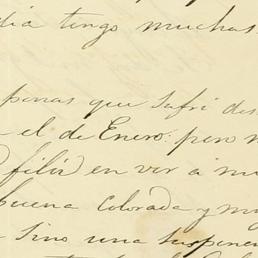 dia tengo muchas
penas que sufri des
el de Enero: pero n
filiz en ver á m
buena colorada y mu
Sino una suspen